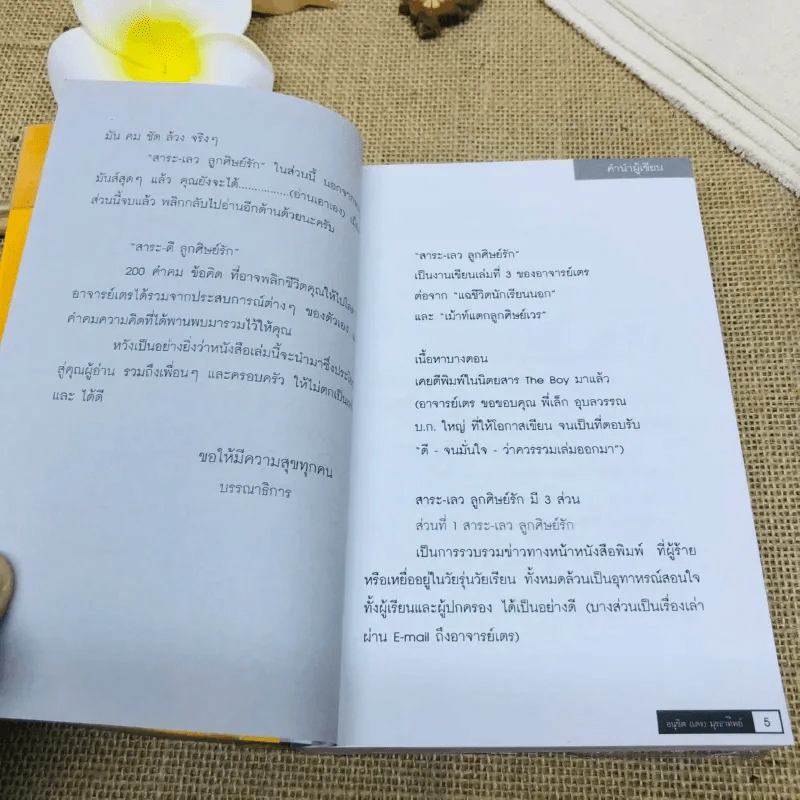 มัน คม ชัด ล้วง จริงๆ
"สาระ-เลว ลูกศิษย์รัก" ในส่วนนี้ นอกจาก
มันส์สุดๆ แล้ว คุณยังจะได้...............(อ่านเอาเอง)
ส่วนนี้จบแล้ว พลิกกลับไปอ่านอีกด้านด้วยนะครับ
"สาระ-ดี ลูกศิษย์รัก"
200 คำคม ข้อคิด ที่อาจพลิกชีวิตคุณให้ไป
อาจารย์เตรได้รวมจากประสบการณ์ต่างๆ ของตัวเอง
คำคมความคิดที่ได้พานพบมารวมไว้ให้คุณ
หวังเป็นอย่างยิ่งว่าหนังสือเล่มนี้จะนำมาซึ่ง
สู่คุณผู้อ่าน รวมถึงเพื่อนๆ และครอบครัว ให้ไม่ตกเป็น
และ ได้ดี
ขอให้มีความสุขทุกคน
บรรณาธิการ
คำนำผู้เขียน
"สาระ-เลว ลูกศิษย์รัก"
เป็นงานเขียนเล่มที่ 3 ของอาจารย์เตร
ต่อจาก "แฉชีวิตนักเรียนนอก"
และ "เม้าท์แตกลูกศิษย์เวร"
เนื้อหาบางตอน
เคยตีพิมพ์ในนิตยสาร The Boy มาแล้ว
(อาจารย์เตร ขอขอบคุณ พี่เล็ก อุบลวรรณ
บ.ก. ใหญ่ ที่ให้โอกาสเขียน จนเป็นที่ตอบรับ
"ดี - จนมั่นใจ - ว่าควรรวมเล่มออกมา")
สาระ-เลว ลูกศิษย์รัก มี 3 ส่วน
ส่วนที่ 1 สาระ-เลว ลูกศิษย์รัก
เป็นการรวบรวมข่าวทางหน้าหนังสือพิมพ์ ที่ผู้ร้าย
หรือเหยื่ออยู่ในวัยรุ่นวัยเรียน ทั้งหมดล้วนเป็นอุทาหรณ์สอนใจ
ทั้งผู้เรียนและผู้ปกครอง ได้เป็นอย่างดี (บางส่วนเป็นเรื่องเล่า
ผ่าน E-mail ถึงอาจารย์เตร)
อนุชิต (เตร) มุรธาทิพย์ 5